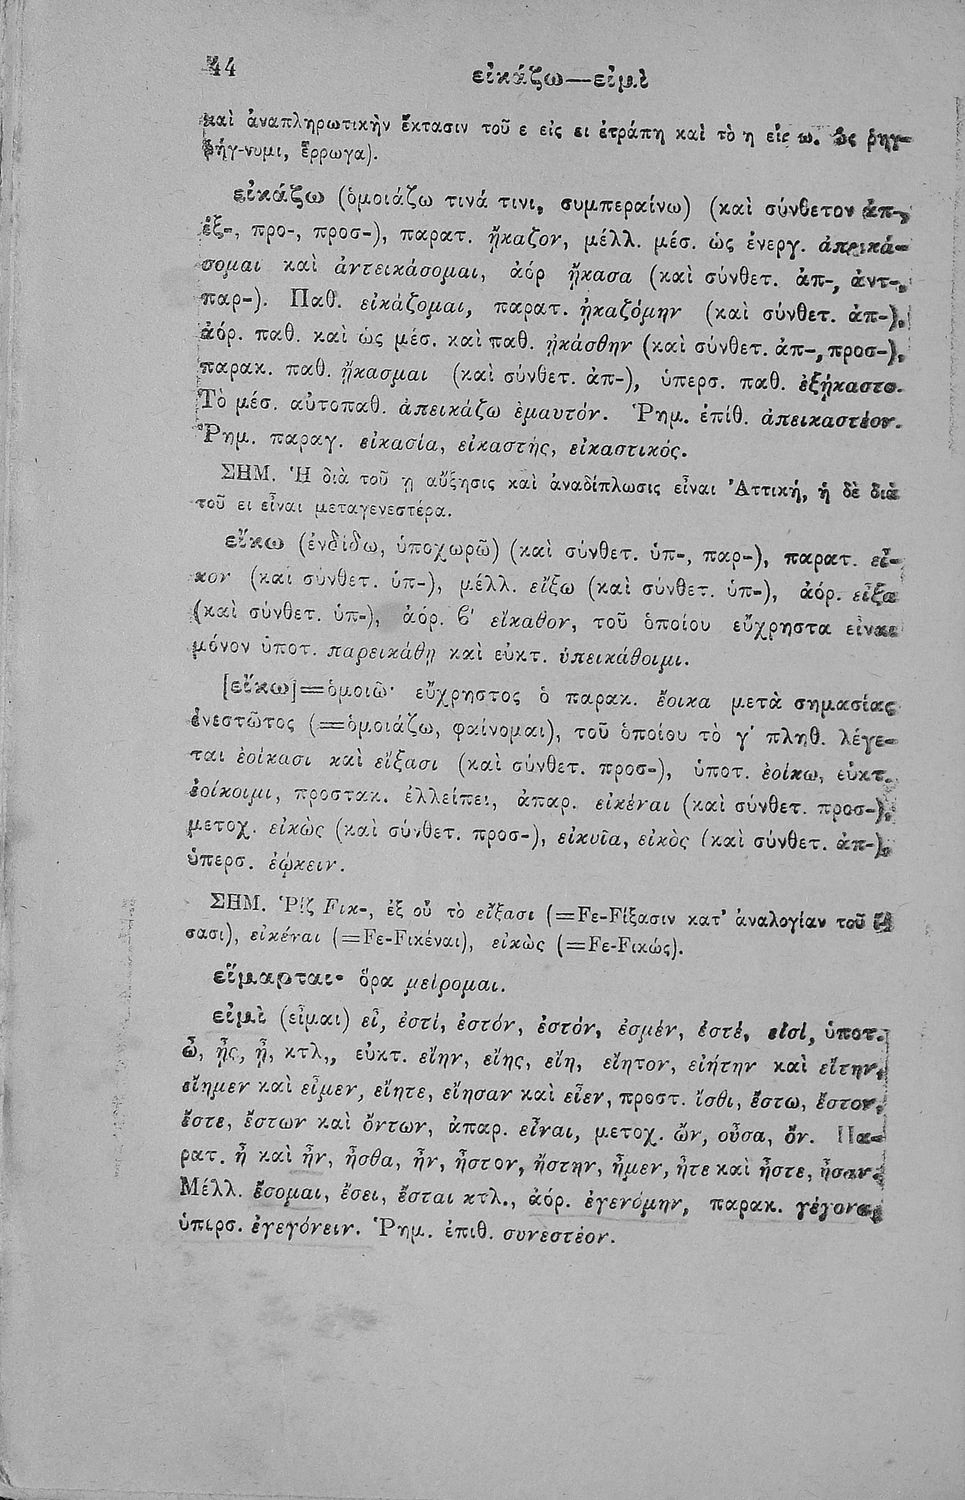 44
εἰκάζω—εἰμὶ
καὶ ἀναπληρωτικὴν ἔκτασιν τοῦ ε εἰς ει ἐτράπη καὶ τὸ η εἰς ω. ὡς ῥηγ-
ῥήγ-νυμι, ἔρρωγα).
εἰκάζω (ὁμοιάζω τινά τινι, συμπεραίνω) (καὶ σύνθετον ἀπ-,
ἐξ-, προ-, προσ-), παρατ. ᾔκαζον, μέλλ. μέσ. ὡς ἐνεργ. ἀπεικά-
σομαι καὶ ἀντεικάσομαι, ἀόρ ᾔκασα (καὶ σύνθετ. ἀπ-, ἀντ-,
παρ-). Παθ. εἰκάζομαι, παρατ. ᾐκαζόμην (καὶ σύνθετ. ἀπ-),
ἀόρ. παθ. καὶ ὡς μέσ. καὶ παθ. ᾐκάσθην (καὶ σύνθετ. ἀπ-, προσ-),
παρακ. παθ. ᾔκασμαι (καὶ σύνθετ. ἀπ-), ὑπερσ. παθ. ἐξῄκαστο.
Τὸ μέσ. αὐτοπαθ. ἀπεικάζω ἐμαυτόν. Ῥημ. ἐπίθ. ἀπεικαστέον.
Ῥημ. παραγ. εἰκασία, εἰκαστής, εἰκαστικός.
ΣΗΜ. Ἡ διὰ τοῦ η αὔξησις καὶ ἀναδίπλωσις εἶναι Ἀττική, ἡ δὲ διὰ
τοῦ ει εἶναι μεταγενεστέρα.
εἴκω (ἐνδίδω, ὑποχωρῶ) (καὶ σύνθετ. ὑπ-, παρ-), παρατ. εἶ-
κον (καὶ σύνθετ. ὑπ-), μέλλ. εἴξω (καὶ σύνθετ. ὑπ-), ἀόρ. εἶξα
(καὶ σύνθετ. ὑπ-), ἀόρ. β' εἴκαθον, τοῦ ὁποίου εὔχρηστα εἶναι
μόνον ὑποτ. παρεικάθῃ καὶ εὐκτ. ὑπεικάθοιμι.
[εἴκω]=ὁμοιῶ· εὔχρηστος ὁ παρακ. ἔοικα μετὰ σημασίας
ἐνεστῶτος (=ὁμοιάζω, φαίνομαι), τοῦ ὁποίου τὸ γ' πληθ. λέγε-
ται ἐοίκασι καὶ εἴξασι (καὶ σύνθετ. προσ-), ὑποτ. ἐοίκω, εὐκτ.
ἐοίκοιμι, προστακ. ἐλλείπει, ἀπαρ. εἰκέναι (καὶ σύνθετ. προσ-),
μετοχ. εἰκὼς (καὶ σύνθετ. προσ-), εἰκυῖα, εἰκὸς (καὶ σύνθετ. ἀπ-),
ὑπερσ. ἐῴκειν.
ΣΗΜ. Ῥίζ Fικ-, ἐξ οὗ τὸ εἴξασι (=Fε-Fίξασιν κατ' ἀναλογίαν τοῦ ἴ-
σασι), εἰκέναι (=Fε-Fικέναι), εἰκὼς (=Fε-Fικώς).
εἵμαρται· ὅρα μείρομαι.
εἰμὶ (εἶμαι) εἶ, ἐστί, ἐστόν, ἐστόν, ἐσμέν, ἐστέ, εἰσί, ὑποτ.
ὦ, ᾖς, ᾖ, κτλ,, εὐκτ. εἴην, εἴης, εἴη, εἴητον, εἰήτην καὶ εἴτην,
εἴημεν καὶ εἶμεν, εἴητε, εἴησαν καὶ εἶεν, προστ. ἴσθι, ἔστω, ἔστον,
ἔστε, ἔστων καὶ ὄντων, ἀπαρ. εἶναι, μετοχ. ὤν, οὖσα, ὄν. Πα-
ρατ. ἦ καὶ ἦν, ἦσθα, ἦν, ἦστον, ἤστην, ἦμεν, ἦτε καὶ ἦστε, ἦσαν.
Μέλλ. ἔσομαι, ἔσει, ἔσται κτλ., ἀόρ. ἐγενόμην, παρακ. γέγονα,
ὑπιρσ. ἐγεγόνειν. Ῥημ. ἐπιθ. συνεστέον.